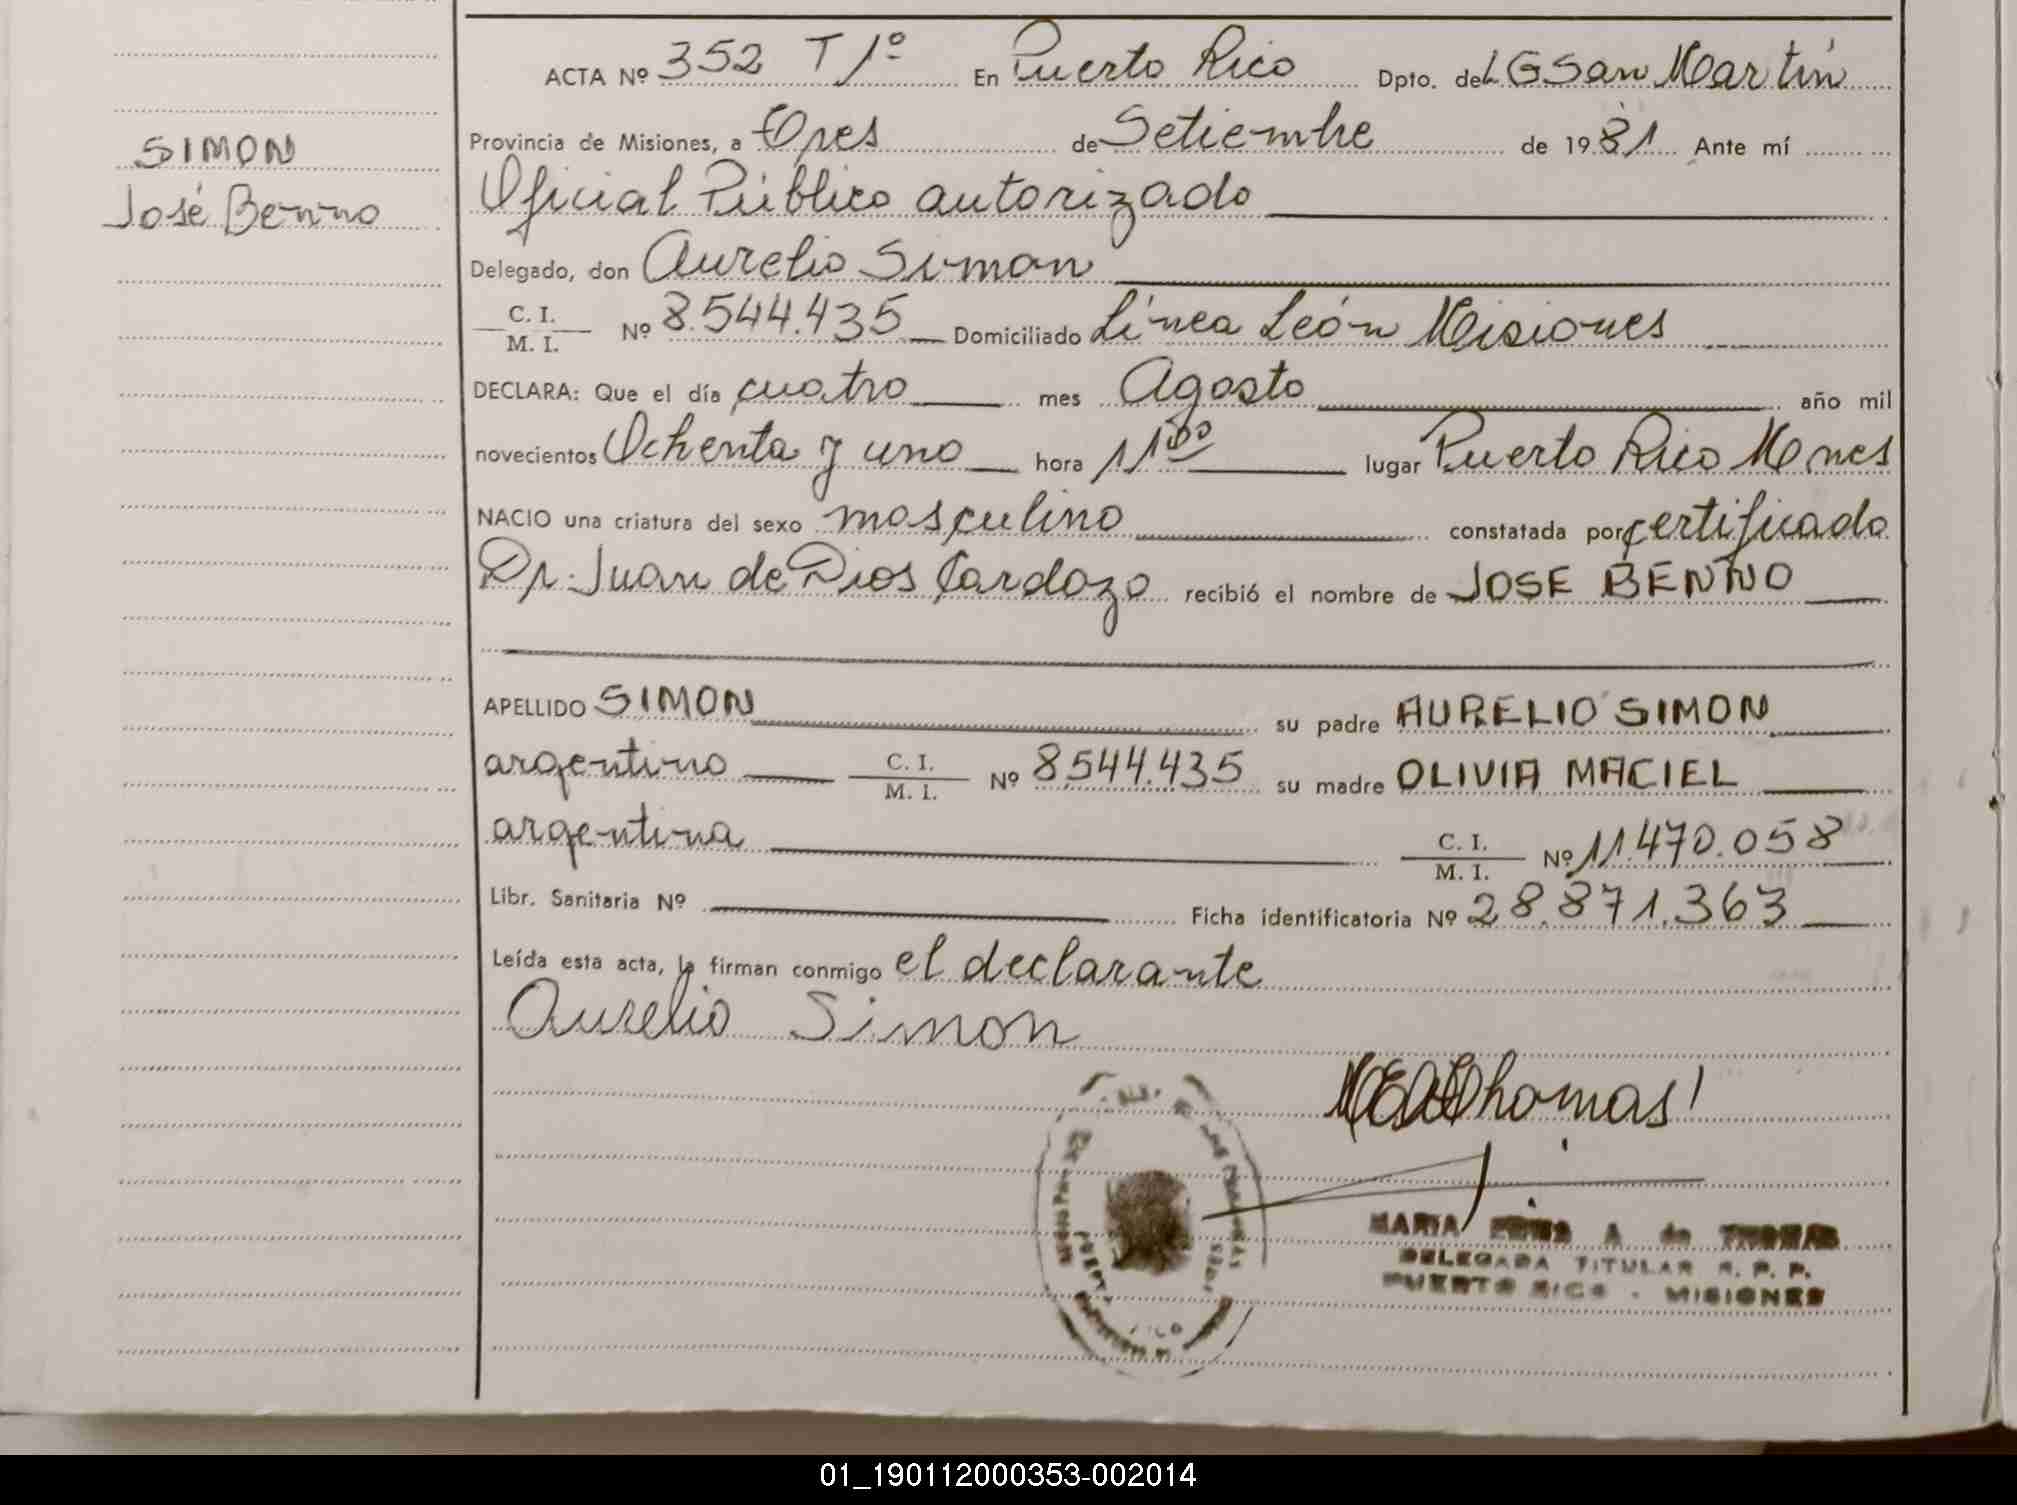 SIMON
José Benno
ACTA Nº 352 T 1º En Puerto Rico Dpto. de LGSan Martín
Provincia de Misiones, a Tres de Setiembre de 1981 Ante mí
Oficial Público autorizado
Delegado, don Aurelio Simon
C. I. / M. I. Nº 8.544.435 Domiciliado Línea León Misiones
DECLARA: Que el día cuatro mes Agosto año mil
novecientos Ochenta y uno hora 11 00 lugar Puerto Rico Mnes
NACIO una criatura del sexo masculino constatada por certificado
Dr. Juan de Dios Cardozo recibió el nombre de JOSE BENNO
APELLIDO SIMON su padre AURELIO SIMON
argentino C. I. / M. I. Nº 8.544.435 su madre OLIVIA MACIEL
argentina C. I. / M. I. Nº 11.470.058
Libr. Sanitaria Nº Ficha identificatoria Nº 28.871.363
Leída esta acta, la firman conmigo el declarante
Aurelio Simon
Thomas
MARIA A de THOMAS
DELEGADA TITULAR R. P. P.
PUERTO RICO - MISIONES
01_190112000353-002014